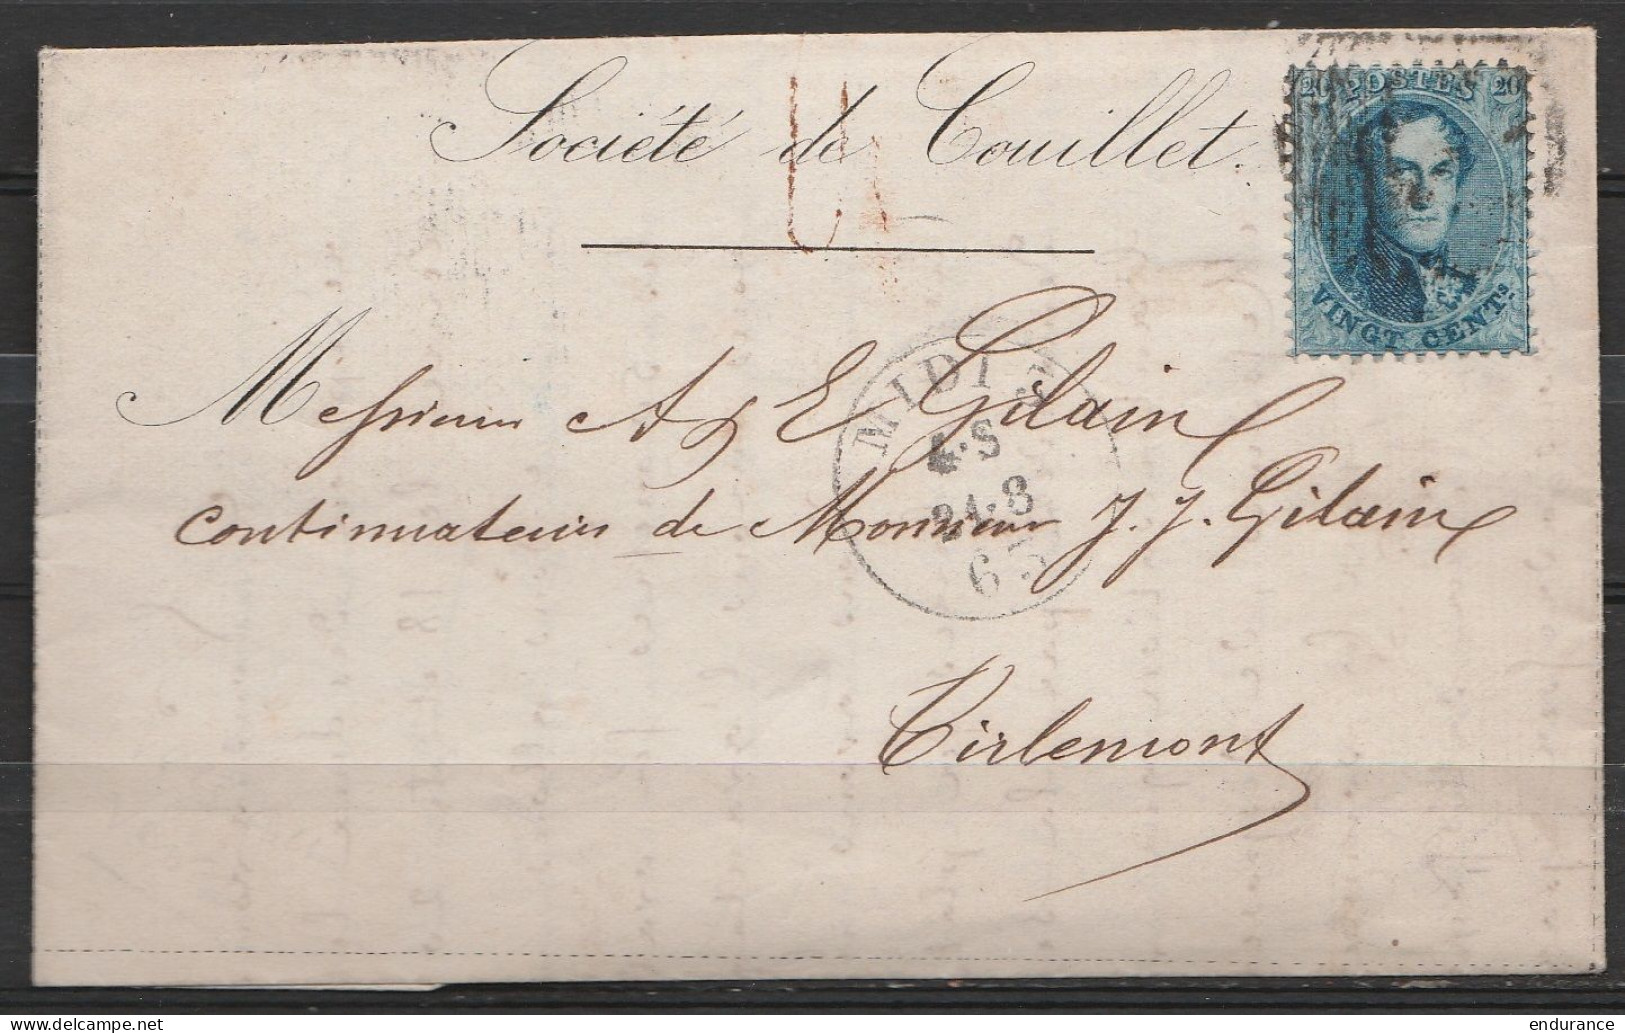 Société de Couillet.
20 POSTES 20
VINGT CENTS.
Messieurs A & E Gilain
MIDI
4·S
21·8
65
continuateurs de Monsieur J. J. Gilain
Tirlemont
delcampe.net
endurance